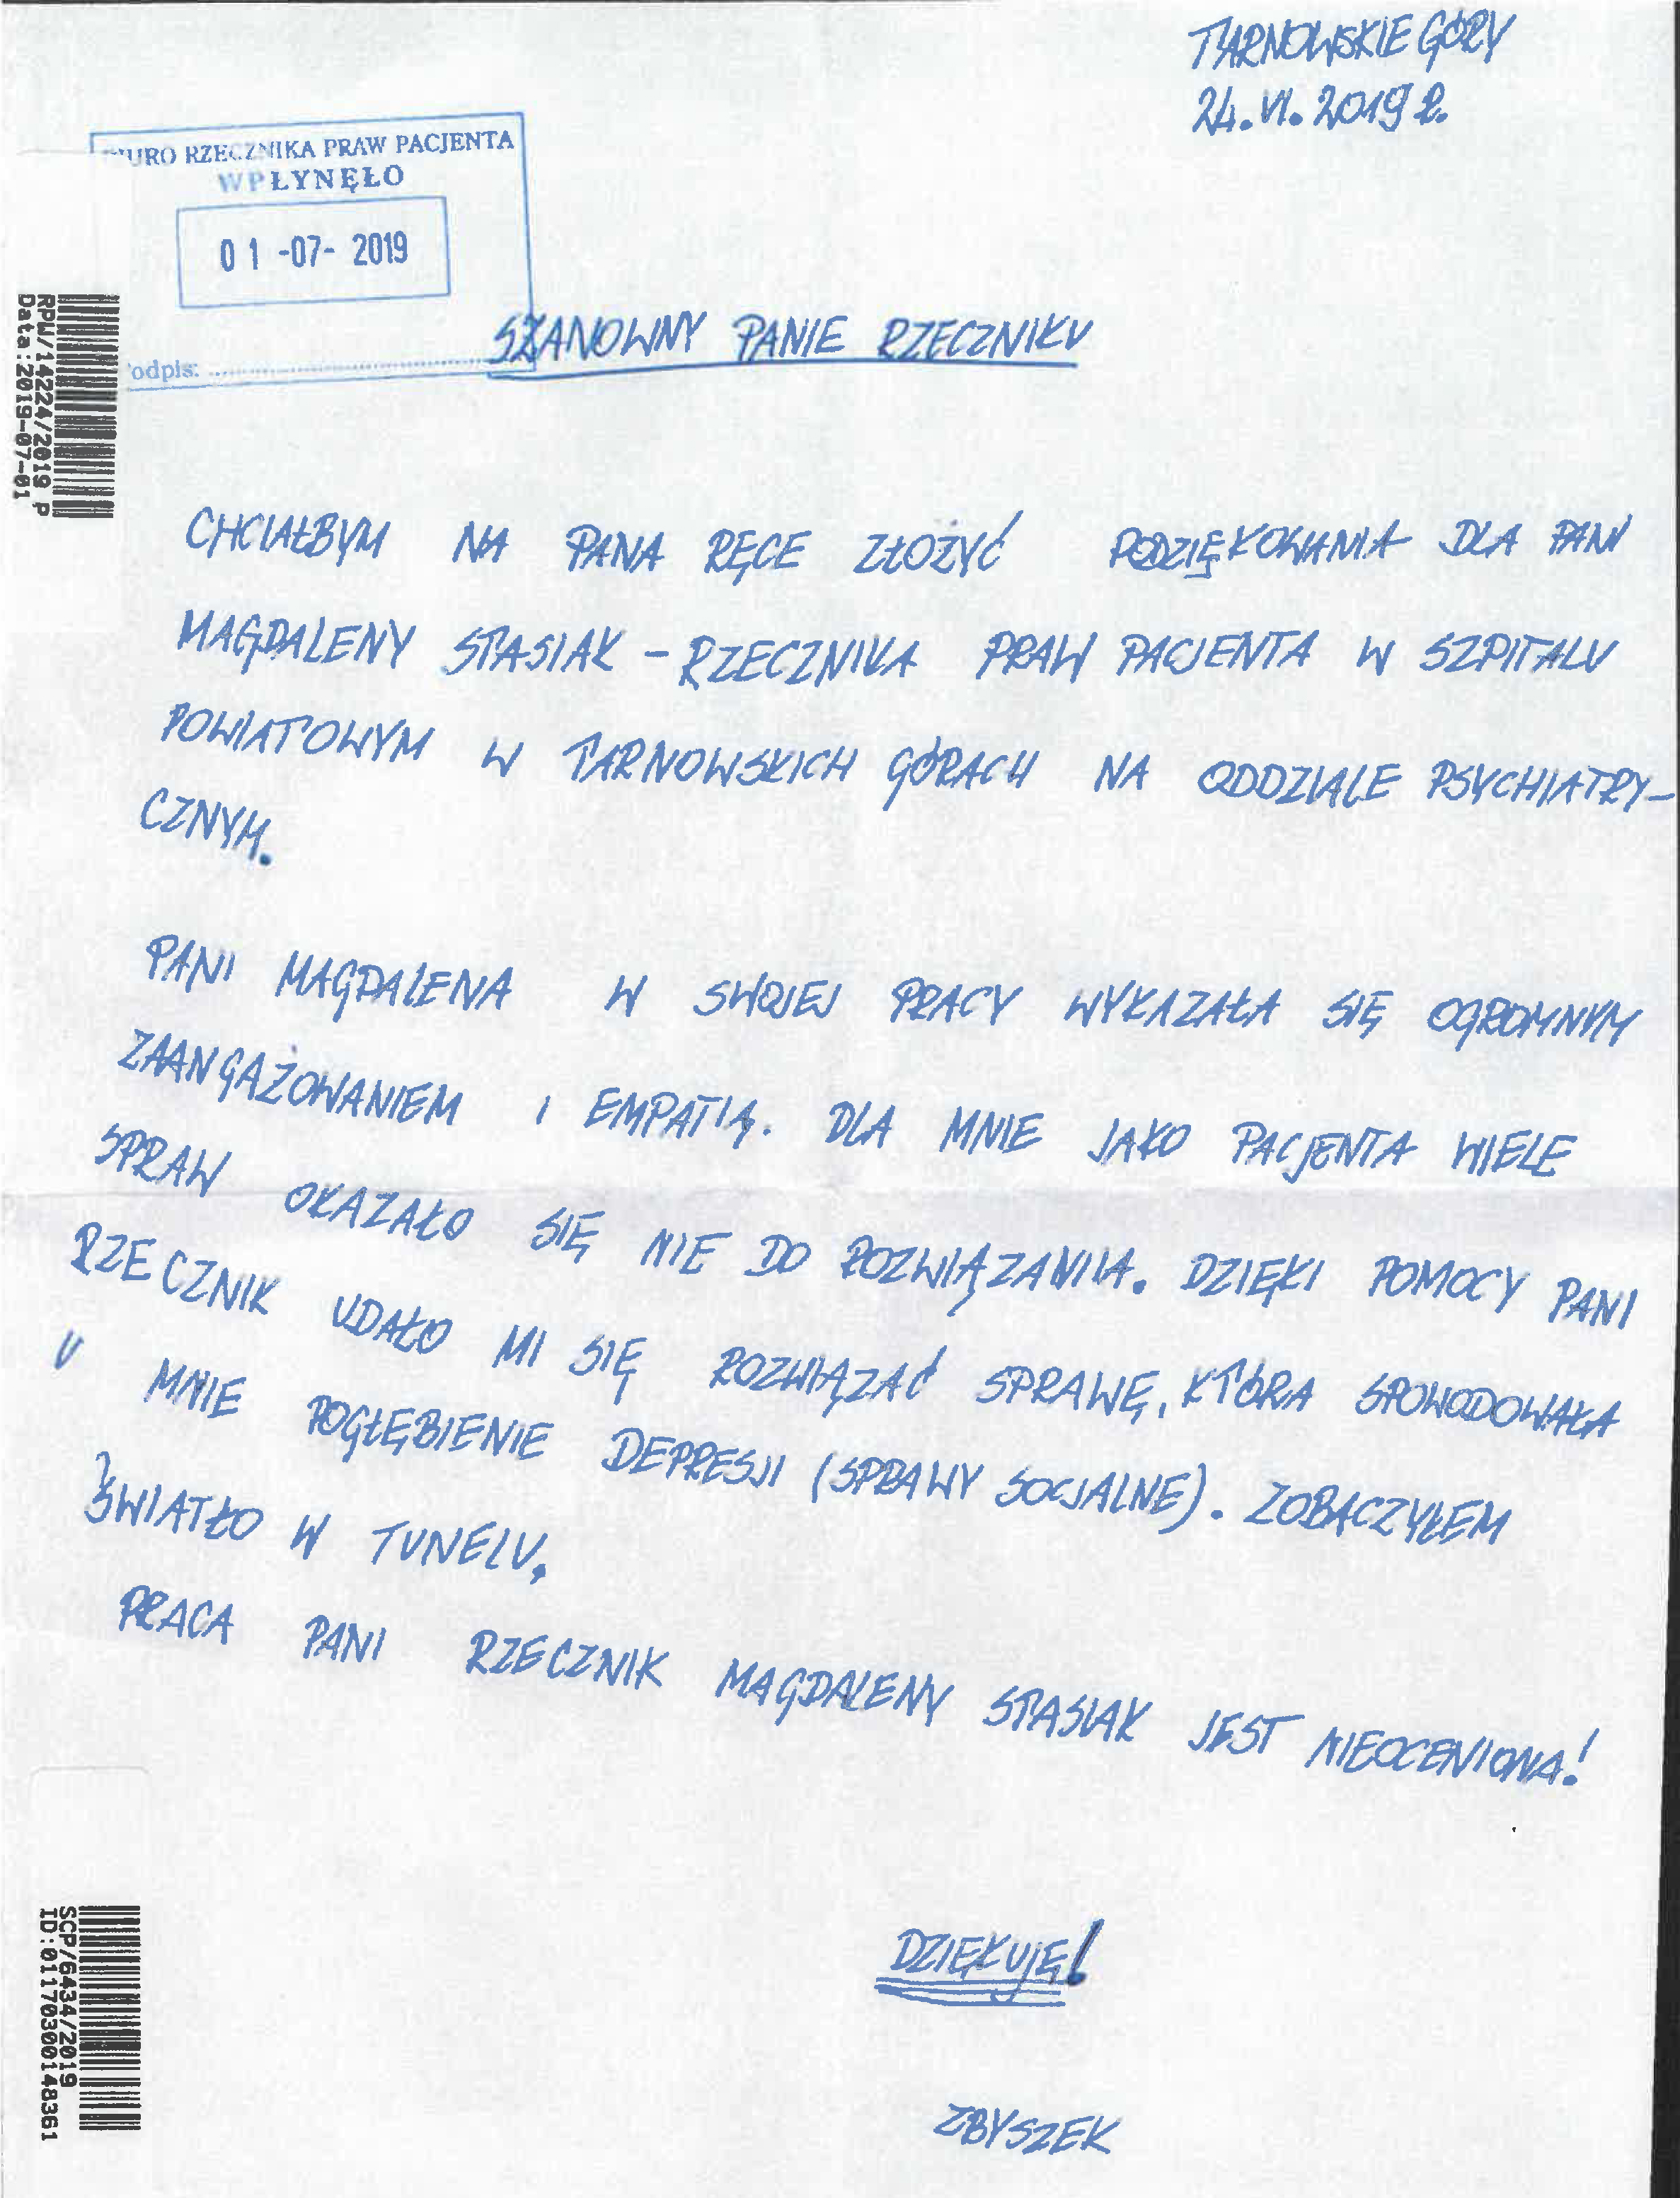 TARNOWSKIE GÓRY
24.VI.2019 R.
BIURO RZECZNIKA PRAW PACJENTA
WPŁYNĘŁO
01 -07- 2019
odpis: ........................................
RPW/14224/2019 P
Data:2019-07-01
SZANOWNY PANIE RZECZNIKU
CHCIAŁBYM NA PANA RĘCE ZŁOŻYĆ PODZIĘKOWANIA DLA PANI
MAGDALENY STASIAK - RZECZNIKA PRAW PACJENTA W SZPITALU
POWIATOWYM W TARNOWSKICH GÓRACH NA ODDZIALE PSYCHIATRY-
CZNYM.
PANI MAGDALENA W SWOJEJ PRACY WYKAZAŁA SIĘ OGROMNYM
ZAANGAŻOWANIEM I EMPATIĄ. DLA MNIE JAKO PACJENTA WIELE
SPRAW OKAZAŁO SIĘ NIE DO ROZWIĄZANIA. DZIĘKI POMOCY PANI
RZECZNIK UDAŁO MI SIĘ ROZWIĄZAĆ SPRAWĘ, KTÓRA SPOWODOWAŁA
U MNIE POGŁĘBIENIE DEPRESJI (SPRAWY SOCJALNE). ZOBACZYŁEM
ŚWIATŁO W TUNELU.
PRACA PANI RZECZNIK MAGDALENY STASIAK JEST NIEOCENIONA!
DZIĘKUJĘ!
ZBYSZEK
SCP/6434/2019
ID:01170300148361